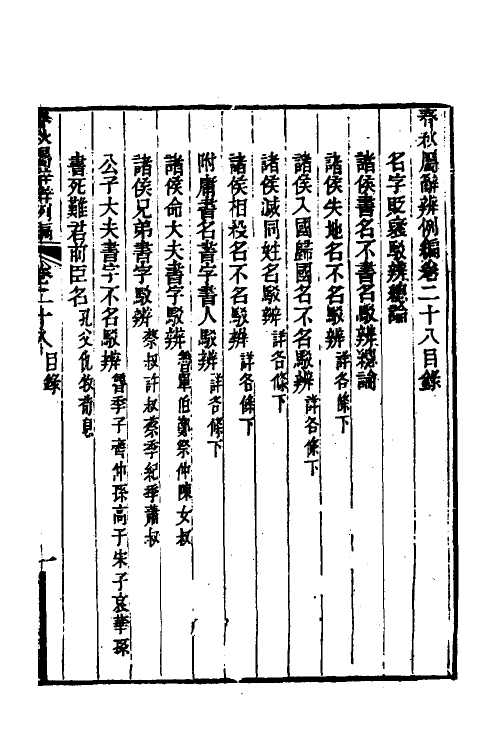 春秋屬辭辨例編卷二十八目錄
名字貶襃駁辨總論
諸侯書名不書名駁辨總論
諸侯失地名不名駁辨詳各條下
諸侯入國歸國名不名駁辨詳各條下
諸侯滅同姓名駁辨詳各條下
諸侯相殺名不名駁辨詳各條下
附庸書名書字書人駁辨詳各條下
諸侯命大夫書字駁辨魯單伯鄭祭仲陳女叔
諸侯兄弟書字駁辨蔡叔許叔蔡季紀季蕭叔
公子大夫書字不名駁辨魯季子齊仲孫高子宋子哀華孫
書死難君前臣名孔父仇牧荀息
春秋屬辭辨例編 卷二十八目錄 一